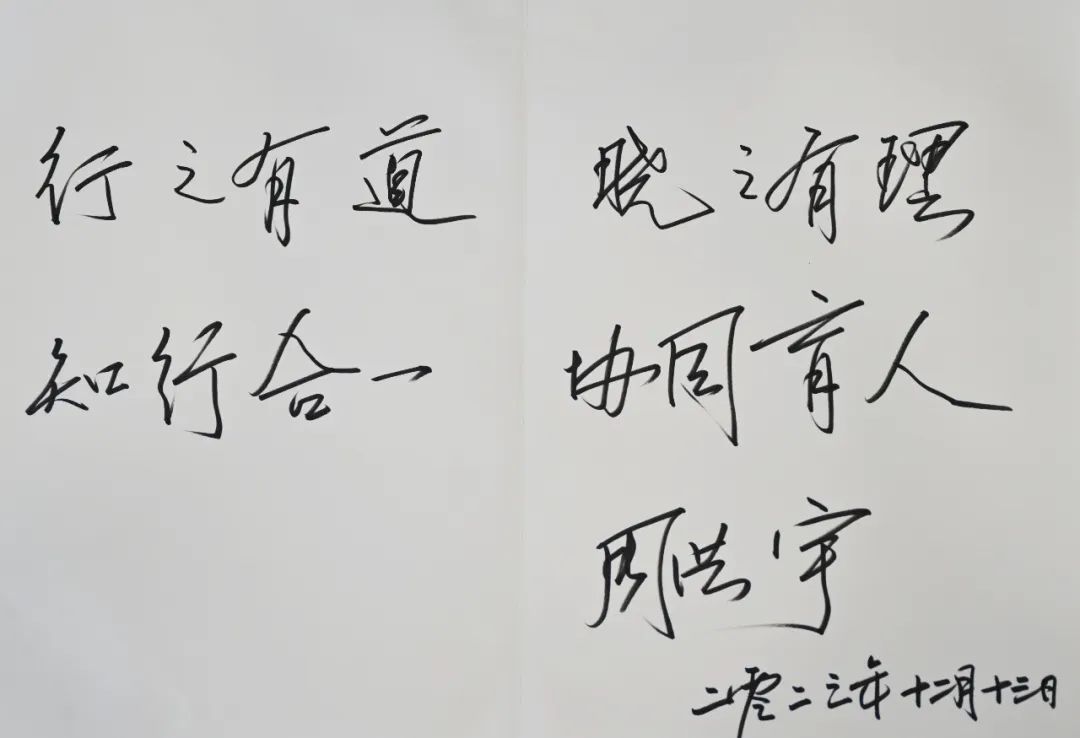 行之有道 晓之有理
知行合一 协同育人
周洪宇
二零二三年十二月十三日